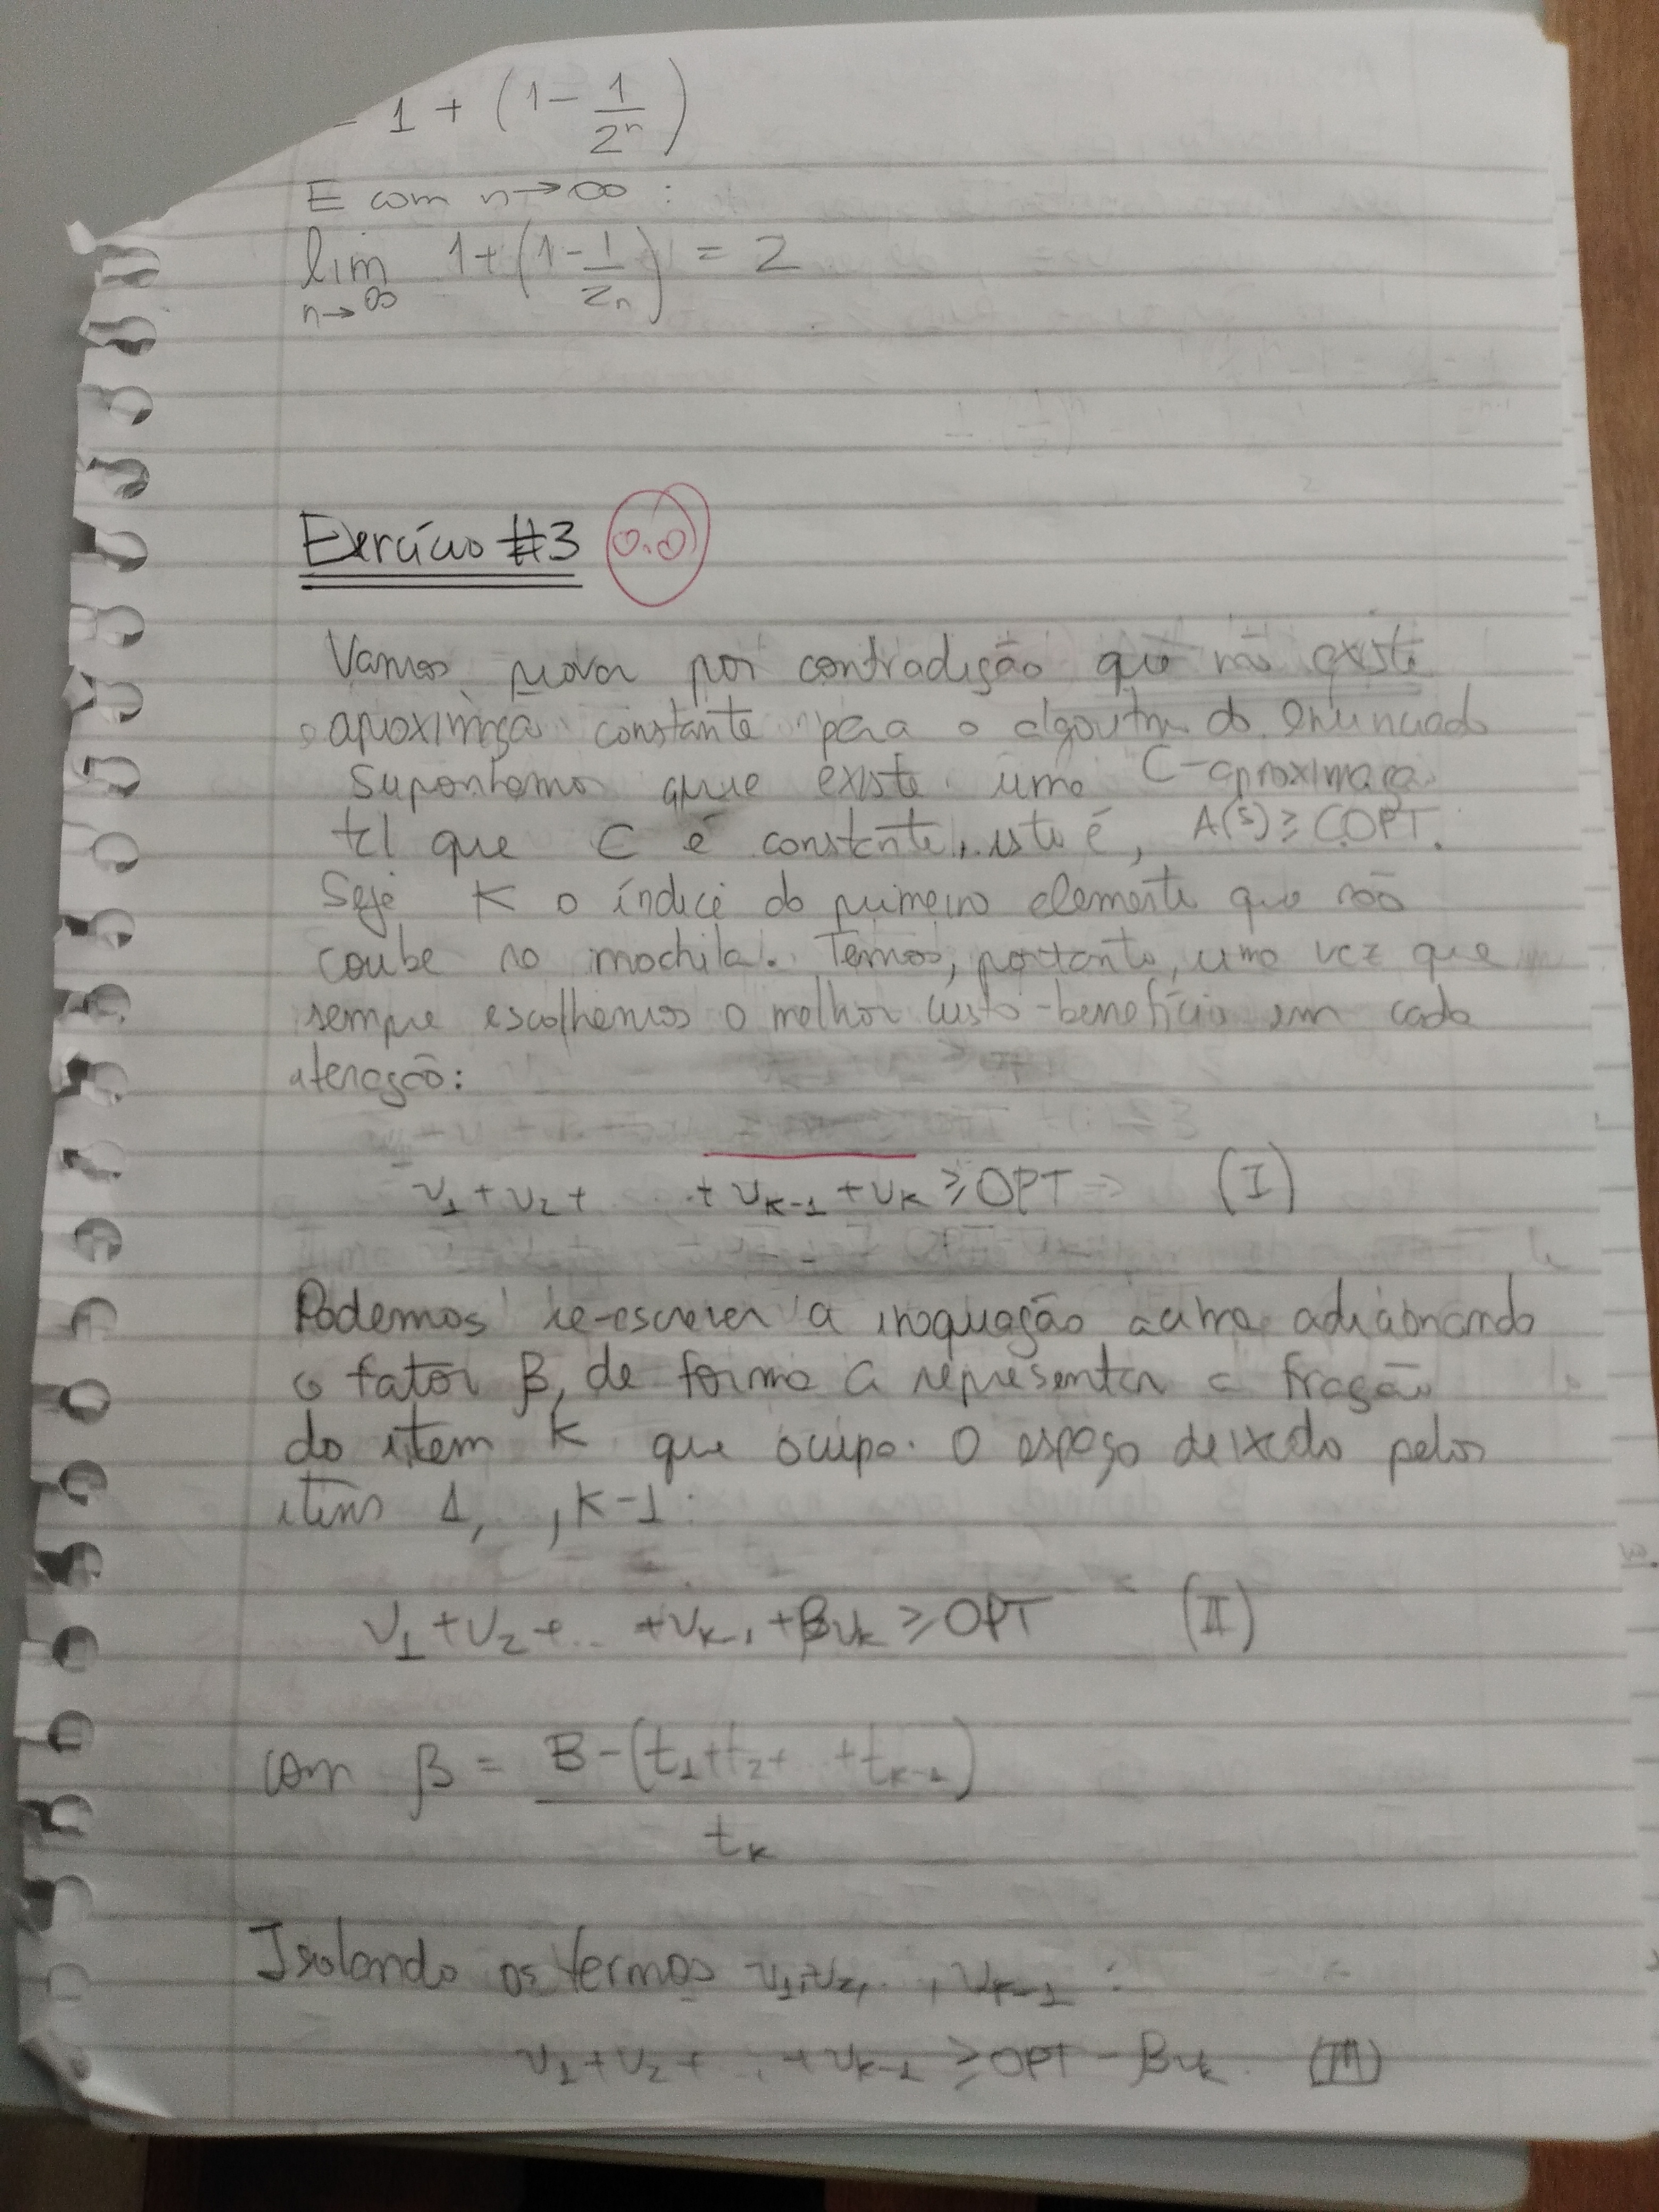 = 1 + (1 - 1/2^n)
E com n→∞ :
lim n→∞ 1+(1-1/2n) = 2
Exercício #3 0.0
Vamos provar por contradição que não existe
aproximação constante para o algoritmo do enunciado
Suponhamos que existe uma C-aproximação
tal que C é constante, isto é, A(S) ≥ C.OPT.
Seja K o índice do primeiro elemento que não
coube na mochila. Temos, portanto, uma vez que
sempre escolhemos o melhor custo-benefício em cada
iteração:
v₁ + v₂ + ... + v_{K-1} + v_K ≥ OPT ⇒ (I)
Podemos re-escrever a inequação acima adicionando
o fator β, de forma a representar a fração
do item K que ocupa o espaço deixado pelos
itens 1, , K-1:
v₁ + v₂ + ... + v_{K-1} + βv_K ≥ OPT (II)
com β = B - (t₁ + t₂ + ... + t_{K-1}) / t_K
Isolando os termos v₁, v₂, ..., v_{K-1} :
v₁ + v₂ + ... + v_{K-1} ≥ OPT - βv_K (III)